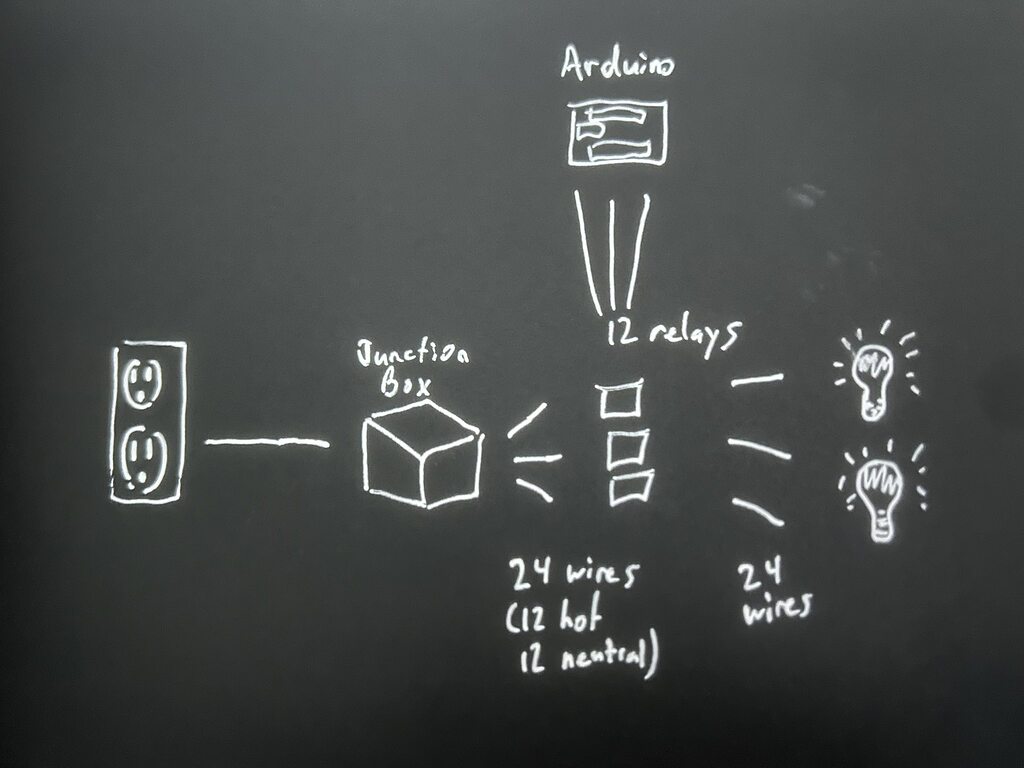 Arduino
12 relays
Junction
Box
24 wires
(12 hot
12 neutral)
24
wires